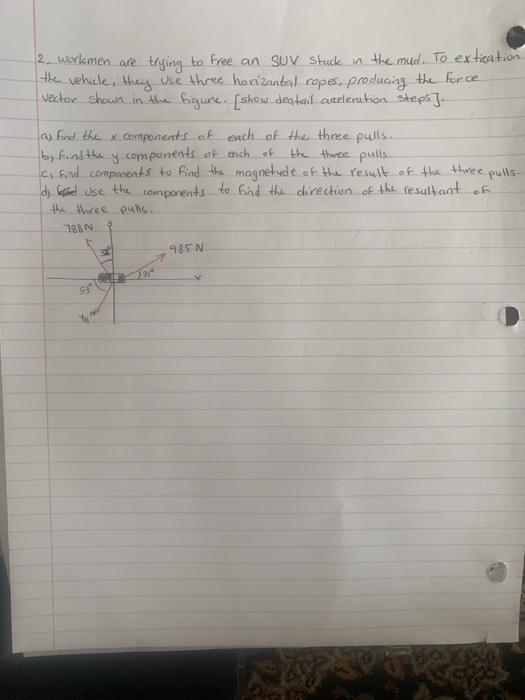 2- workmen are trying to free an SUV stuck in the mud. To extication
the vehicle, they use three horizantal ropes, producing the force
vector shown in the figure. [show deatail aceleration steps].
a) Find the x components of each of the three pulls.
b) Find the y components of each of the three pulls
c) find components to find the magnetude of the result of the three pulls
d) use the components to find the direction of the resultant of
the three pulls.
y
788N
985 N
32°
31°
x
53°